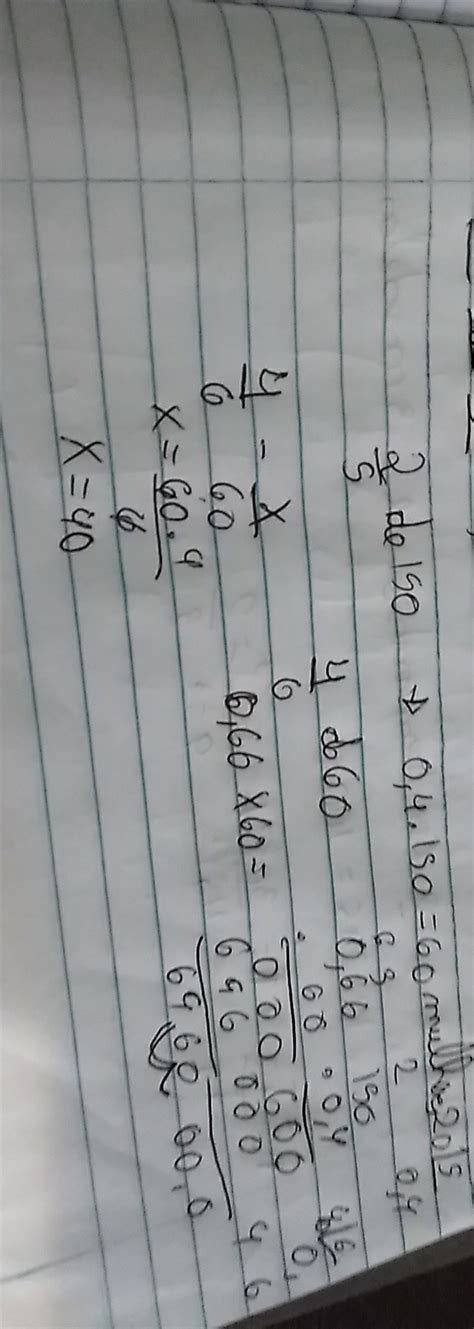 2/5 de 150 → 0,4 . 150 = 60 mulheres 2015
4/6 de 60
4/6 - x/60
0,66 x 60 =
x = 60.4
6
x = 40
0,66
60
000
150
0,4
600
000
60,0
2
0,4
0,
4 6